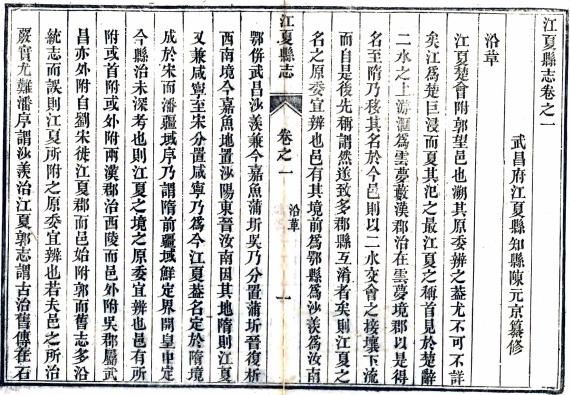 江夏縣志卷之一
武昌府江夏縣知縣陳元京纂修
沿革
江夏楚會附郭望邑也溯其原委辨之葢尤不可不詳
矣江爲楚巨浸而夏其氾之最江夏之稱首見於楚辭
二水之上游滙爲雲夢藪漢郡治在雲夢境郡以是得
名至隋乃移其名於今邑則以二水交會之接壤下流
而自是後先稱謂然遂致多郡縣互淆者矣則江夏之
名之原委宜辨也邑有其境前爲鄂縣爲沙羨爲汝南
江夏縣志
卷之一
沿革
一
鄂併武昌沙羨兼今嘉魚蒲圻吳乃分置蒲圻晉復析
西南境今嘉魚地置沙陽東晉汝南因其地隋則江夏
又兼咸寧至宋分置咸寧乃爲今江夏葢名定於隋境
成於宋而潘疆域序乃謂隋前疆域鮮定界開皇申定
今縣治未深考也則江夏之境之原委宜辨也邑有所
附或首附或外附兩漢郡治西陵而邑外附吳郡屬武
昌亦外附自劉宋徙江夏郡而邑始附郭而舊志多沿
統志而誤則江夏所附之原委宜辨也若夫邑之所治
厥實尤難潘序謂沙羨治江夏郭志謂古治舊傳在石